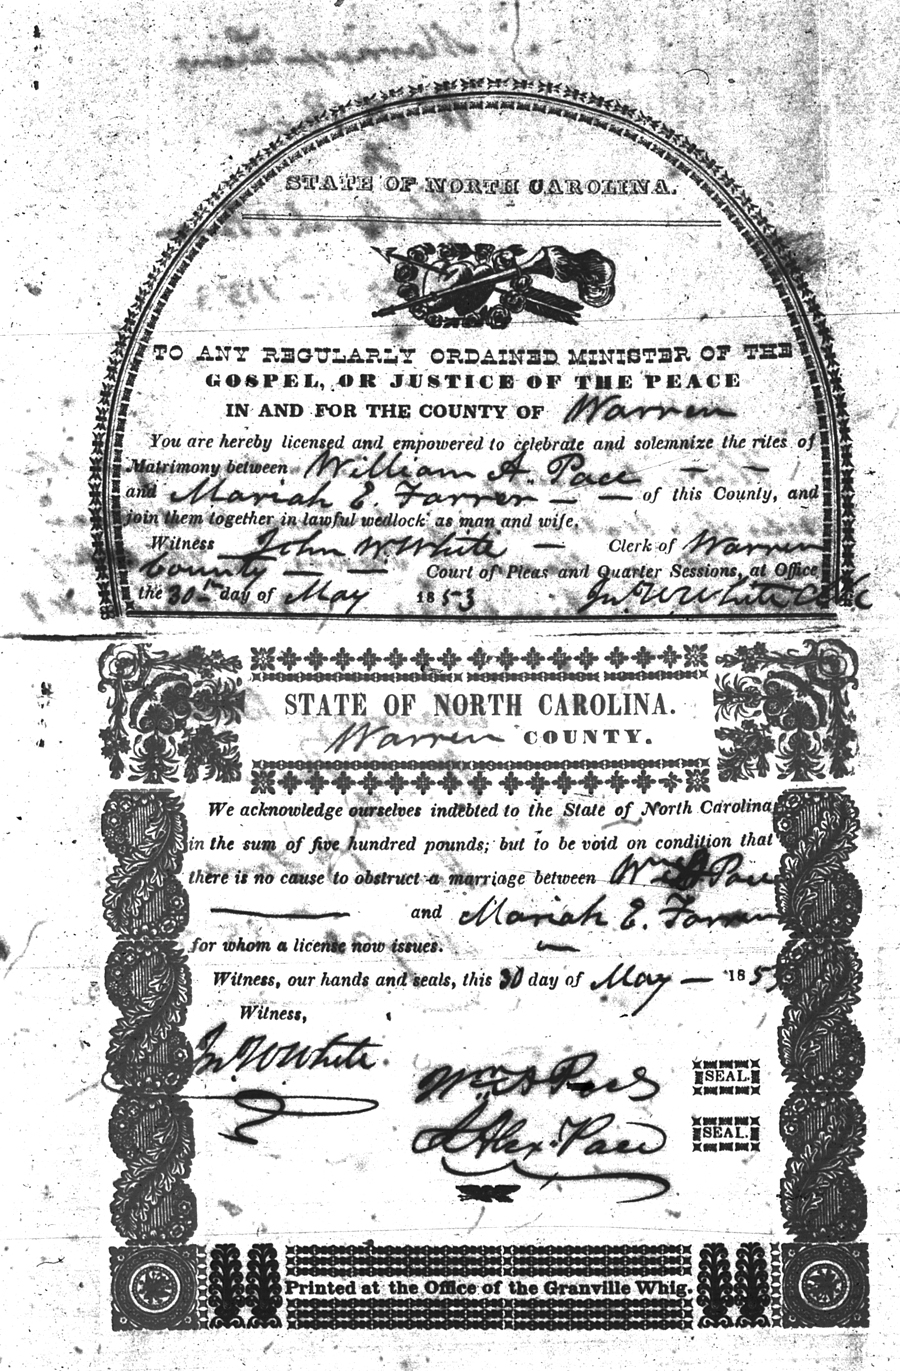 STATE OF NORTH CAROLINA.
TO ANY REGULARLY ORDAINED MINISTER OF THE
GOSPEL, OR JUSTICE OF THE PEACE
IN AND FOR THE COUNTY OF Warren
You are hereby licensed and empowered to celebrate and solemnize the rites of
Matrimony between William A. Pace — —
and Mariah E. Farrer — — of this County, and
join them together in lawful wedlock as man and wife.
Witness John W. White — Clerk of Warren
County — — Court of Pleas and Quarter Sessions, at Office
the 30th day of May 1853 Jn. W White
STATE OF NORTH CAROLINA.
Warren COUNTY.
We acknowledge ourselves indebted to the State of North Carolina
in the sum of five hundred pounds; but to be void on condition that
there is no cause to obstruct a marriage between Wm A Pace
— and Mariah E. Farrer
for whom a license now issues. —
Witness, our hands and seals, this 30 day of May — 1853
Witness,
Jn. W White.
Wm A Pace SEAL.
Alex. Pace SEAL.
Printed at the Office of the Granville Whig.